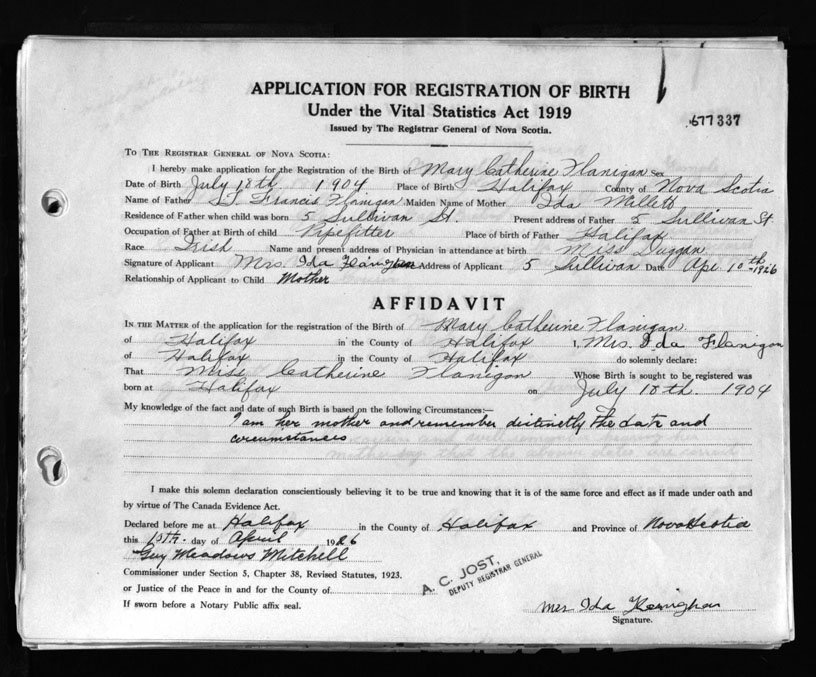 APPLICATION FOR REGISTRATION OF BIRTH
Under the Vital Statistics Act 1919
Issued by The Registrar General of Nova Scotia.
677337
TO THE REGISTRAR GENERAL OF NOVA SCOTIA:
I hereby make application for the Registration of the Birth of Mary Catherine Flanigan Sex
Date of Birth July 18th 1904 Place of Birth Halifax County of Nova Scotia
Name of Father Francis Flanigan Maiden Name of Mother Ida Mellett
Residence of Father when child was born 5 Sullivan St. Present address of Father 5 Sullivan St
Occupation of Father at Birth of child Pipefitter Place of birth of Father Halifax
Race Irish Name and present address of Physician in attendance at birth Miss Duggan
Signature of Applicant Mrs. Ida Address of Applicant 5 Sullivan Date Apr 10th 1926
Relationship of Applicant to Child Mother
AFFIDAVIT
IN THE MATTER of the application for the registration of the Birth of Mary Catherine Flanigan
of Halifax in the County of Halifax I, Mrs. Ida Flanigan
of Halifax in the County of Halifax do solemnly declare:
That Miss Catherine Flanigon Whose Birth is sought to be registered was
born at Halifax on July 18th. 1904
My knowledge of the fact and date of such Birth is based on the following Circumstances:—
I am her mother and remember distinctly the date and
circumstances
I make this solemn declaration conscientiously believing it to be true and knowing that it is of the same force and effect as if made under oath and
by virtue of The Canada Evidence Act.
Declared before me at Halifax in the County of Halifax and Province of Nova Scotia
this 10th. day of April 1926
Guy Meadows Mitchell
Commissioner under Section 5, Chapter 38, Revised Statutes, 1923.
A. C. JOST,
DEPUTY REGISTRAR GENERAL
or Justice of the Peace in and for the County of
If sworn before a Notary Public affix seal.
Mrs Ida
Signature.